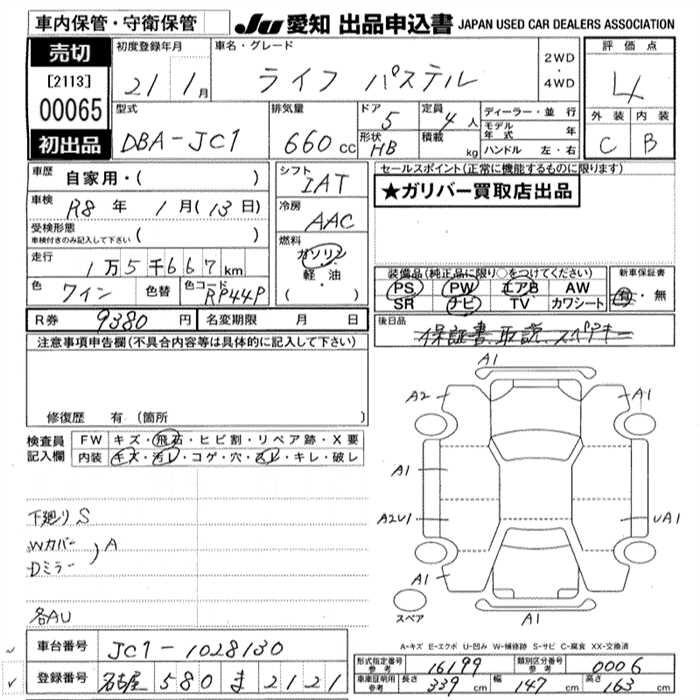 車内保管・守衛保管
JU 愛知 出品申込書 JAPAN USED CAR DEALERS ASSOCIATION
売切
[2113]
00065
初出品
初度登録年月 21 1月
車名・グレード ライフ パステル
2WD ・ 4WD
評価点 4
外装 内装
C B
型式 DBA-JC1
排気量 660 cc
ドア 5
形状 HB
定員 4 人
積載 kg
ディーラー・並行
モデル年式 年
ハンドル 左・右
車歴 自家用・( )
車検 R8 年 1月(13日)
受検形態 車検付きのみ記入して下さい ( )
走行 1万5千667km
色 ワイン 色替 色コード RP44P
シフト IAT
冷房 AAC
燃料 ガソリン
軽・油
( )
セールスポイント(正常に機能するものに限ります)
★ガリバー買取店出品
装備品(純正品に限り○をつけてください)
PS PW エアB AW
SR ナビ TV カワシート
新車保証書
有・無
R券 9380 円 名変期限 月 日
後日品 保証書 取説 スペアキー
注意事項申告欄(不具合内容等は具体的に記入して下さい)
修復歴 有 (箇所
検査員記入欄
FW キズ・飛石・ヒビ割・リペア跡・X要
内装 キズ・汚レ・コゲ・穴・スレ・キレ・破レ
下廻りS
Wカバー
Dミラー ) A
各AU
A1
A2 A1
A1
A2U1 UA1
A1
A1
スペア
A-キズ E-エクボ U-凹み W-補修跡 S-サビ C-腐食 XX-交換済
車台番号 JC1-1028130
登録番号 名古屋 580 ま 2121
形式指定番号 参考 16199 類別区分番号 参考 0006
車庫証明用 参考 長さ 339 cm 幅 147 cm 高さ 163 cm